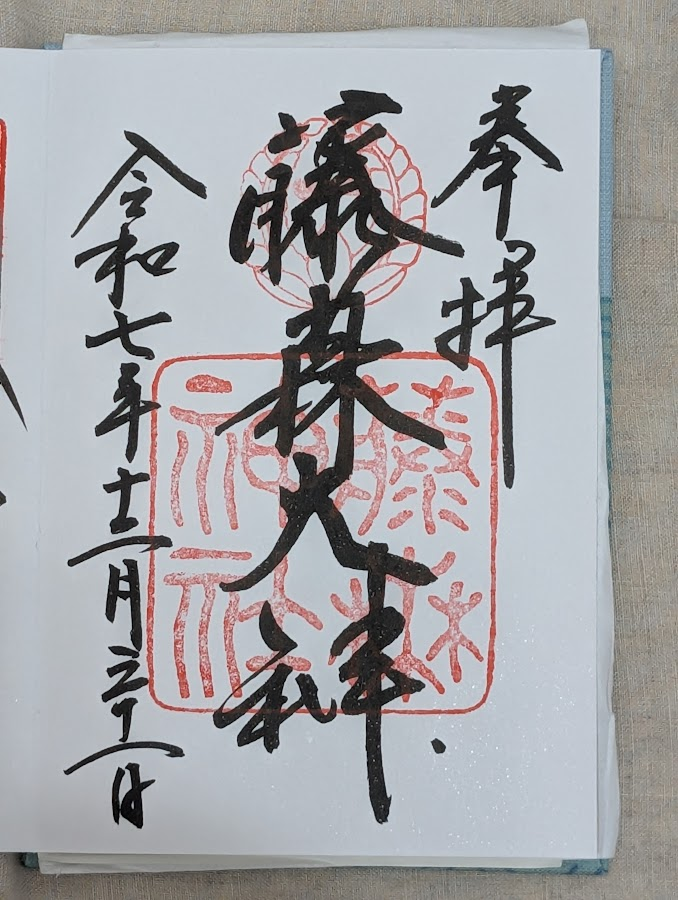 奉拝
藤森大神
藤森
神社
令和七年十二月三十一日